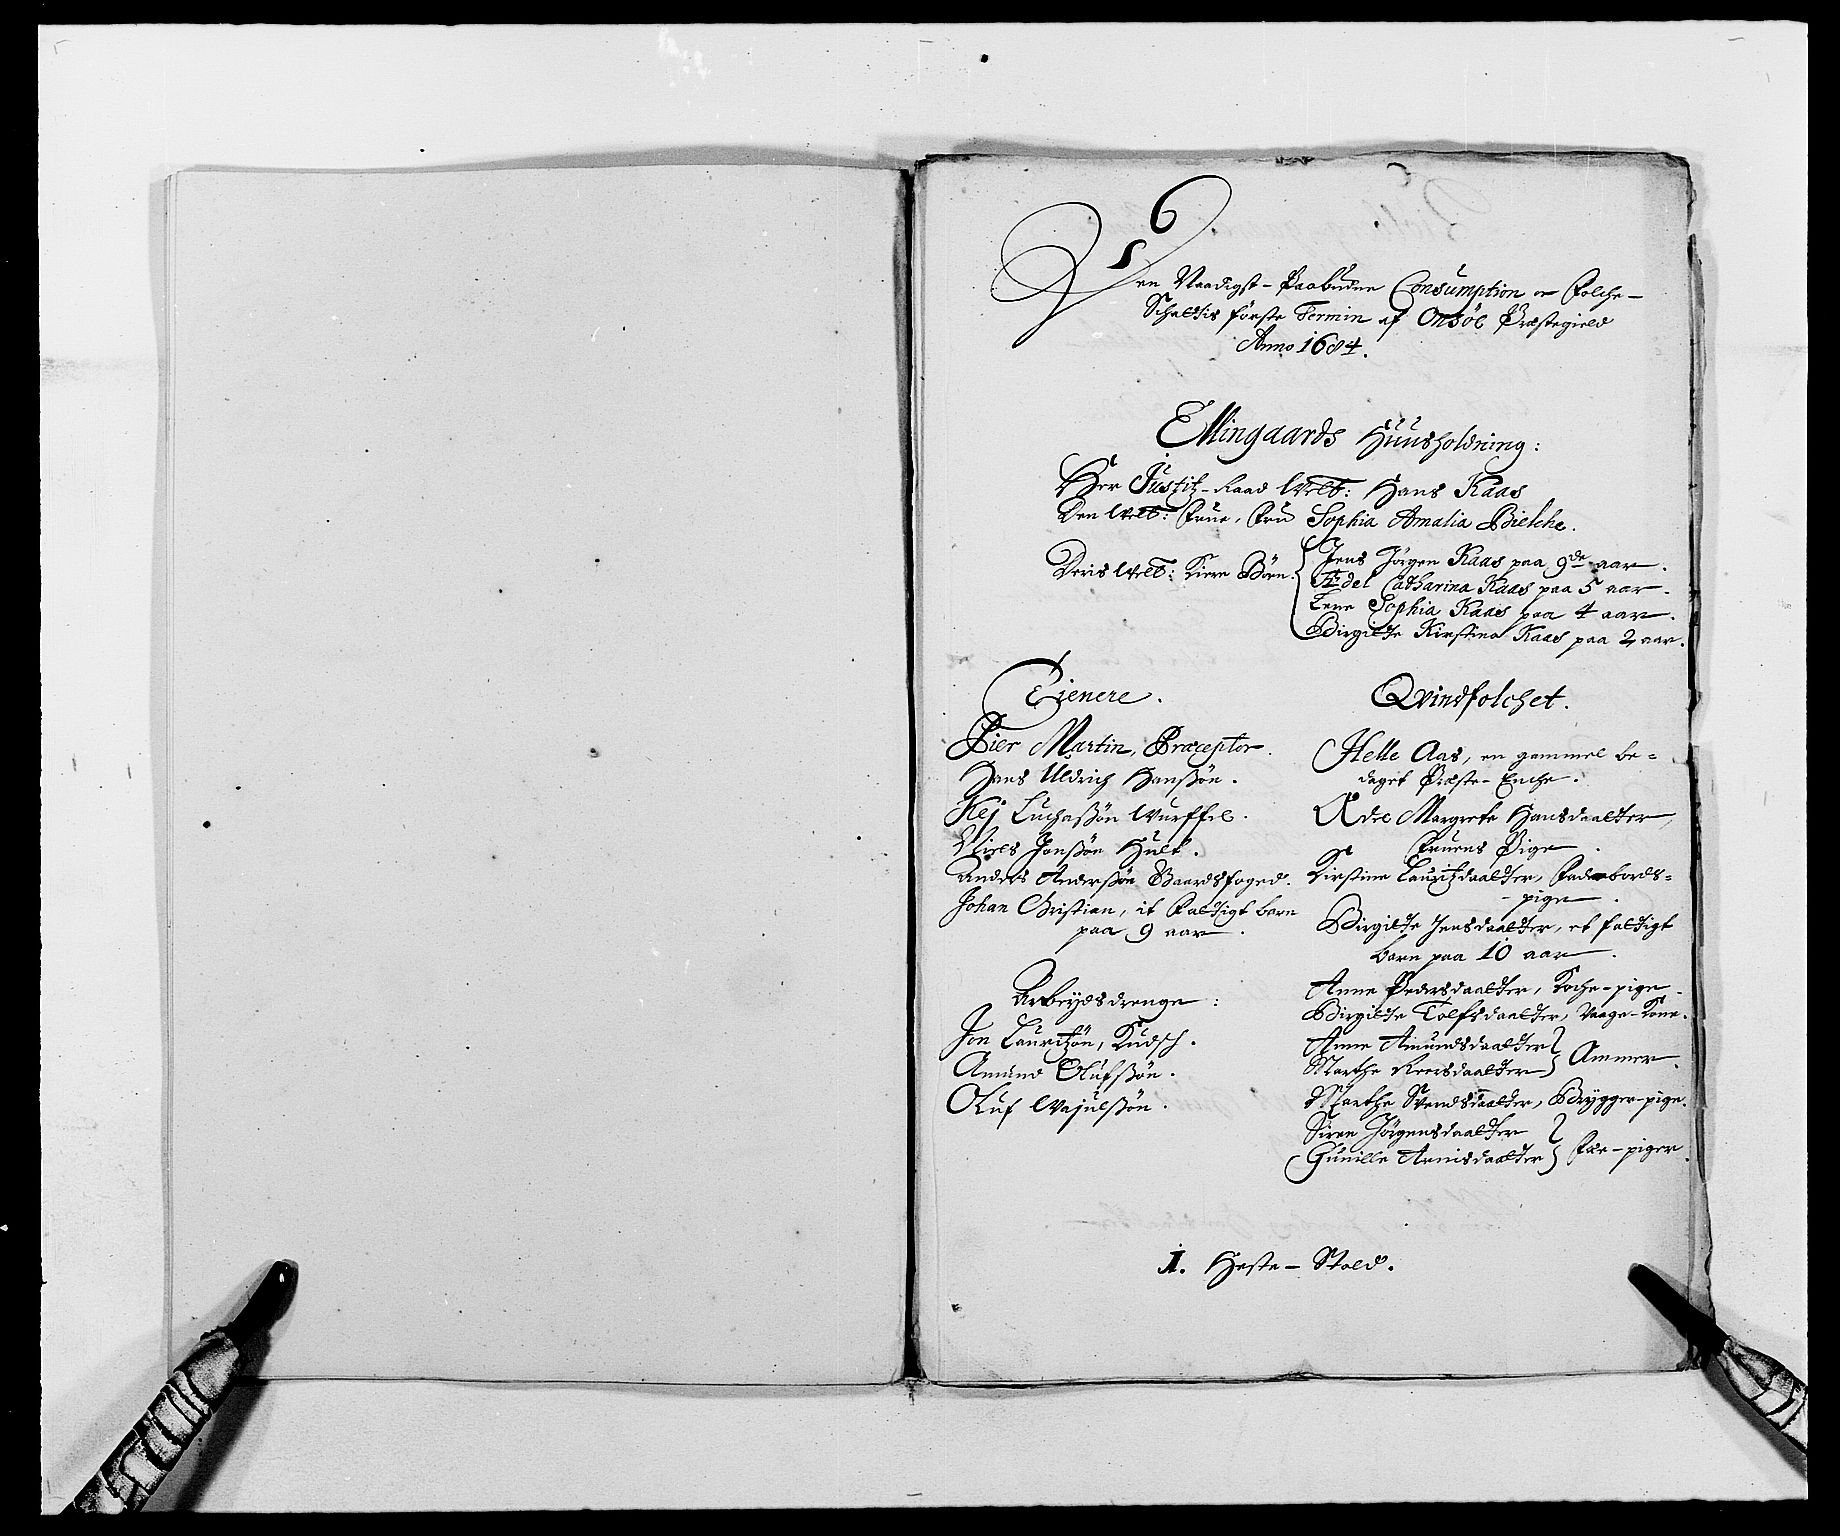 6
Den Naadigst-Paabudne Consumption oc Folche-
Schattis første Termin af Onsøe Præstegield
Anno 1684.
Ellingaards Huusholdning:
Her Justitz-Raad Welb: Hans Kaas
Den Welb: Frue, Fru Sophia Amalia Bielche.
Deris Welb: Kiere Børn.
Jens Jørgen Kaas paa 9de aar.
Edel Catharina Kaas paa 5 aar.
Lene Sophia Kaas paa 4 aar.
Birgitte Kirstina Kaas paa 2 aar.
Tienere.
Pier Martin, Præceptor.
Hans Uldrich Hanssøn.
Kej Luchassøn Wurffel.
Niels Jonssøn Hult.
Anders Anderssøn Gaardsfoged.
Johan Christian, it Fattigt barn
paa 9 aar.
Arbeydsdrenge:
Jon Lauritzøn, Kudsch.
Amund Olufssøn.
Oluf Wajulssøn.
Qvindfolchet.
Helle Aas, en gammel be-
daget Præste-Enche.
Adel Margrete Hansdaatter,
Fruens Pige.
Kirstine Lauritzdaatter, Fadebords-
pige.
Birgitte Jensdaatter, et fattigt
barn paa 10 aar.
Anne Pedersdaatter, Koche-pige.
Birgitte Tolfsdaatter, Vaage-Kone.
Anne Amundsdaatter
Marthe Reersdaatter
Ammer.
Marthe Svendsdaatter, Brygger-pige.
Siren Jørgensdaatter
Gunille Arnisdaatter
Fæe-piger.
1. Heste-Stald.